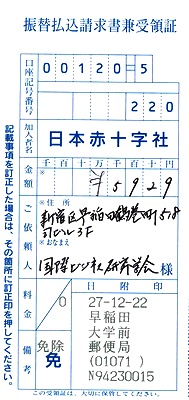 振替払込請求書兼受領証
口座記号番号
00120-5
220
加入者名
日本赤十字社
金額
千百十万千百十円
※
¥5929
ご依頼人
※ご住所
新宿区早稲田鶴巻町518
司ビル3F
※おなまえ
国際ビジネス研究学会 様
料金
0
免除
免
備考
日附印
27-12-22
早稲田
大学前
郵便局
(01071)
N94230015
この受領証は、大切に保管してください。
記載事項を訂正した場合は、その箇所に訂正印を押してください。